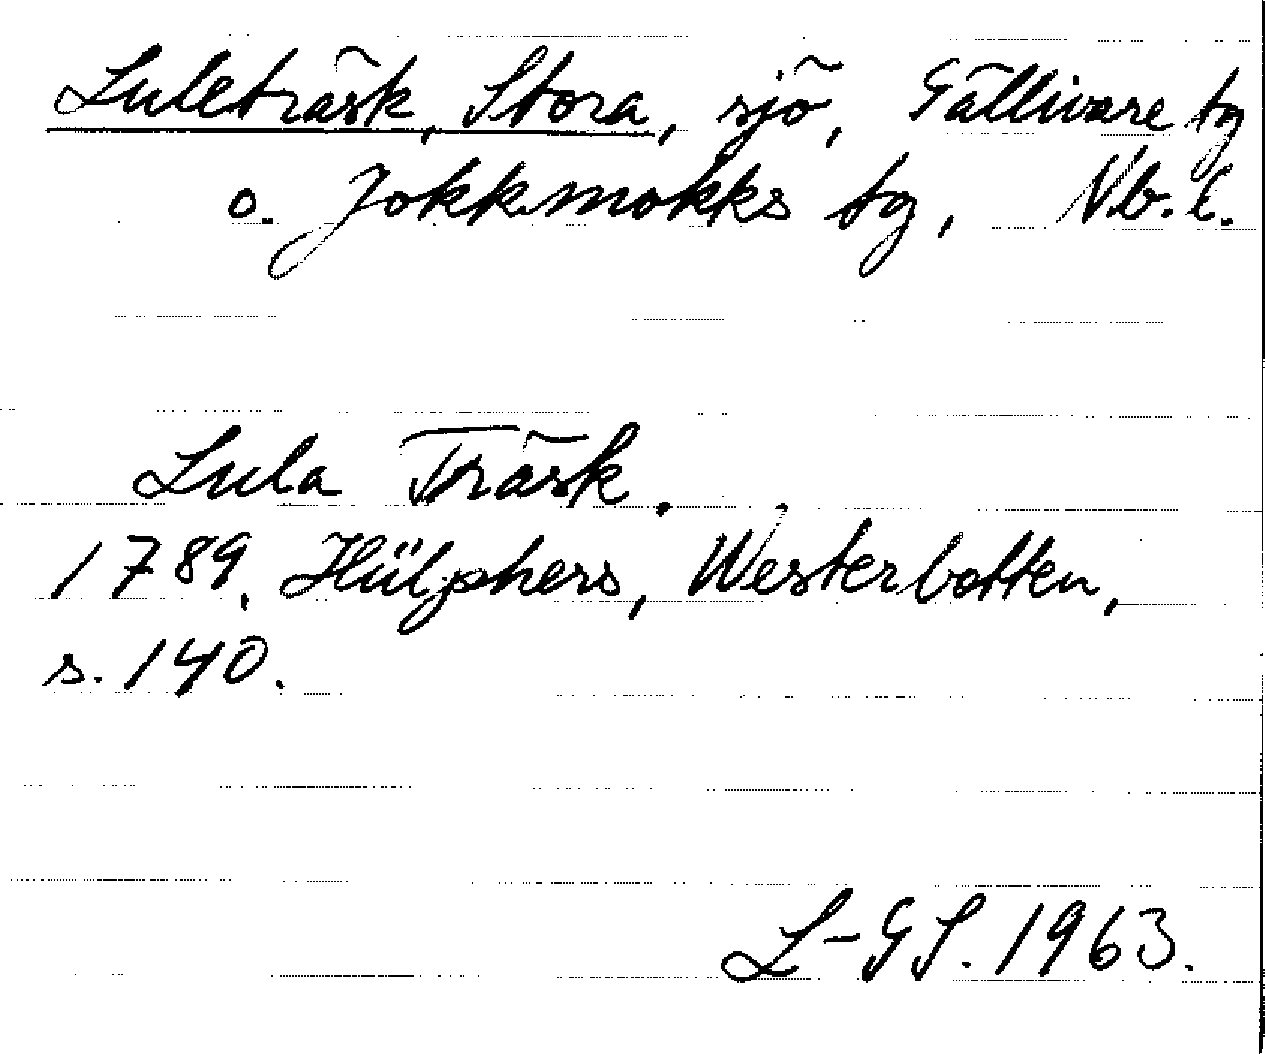 Luleträsk, Stora, sjö, Gällivare tg
o. Jokkmokks tg, Nb. l.
Lula Träsk.
1789, Hülphers, Westerbotten,
s. 140.
L-GS. 1963.